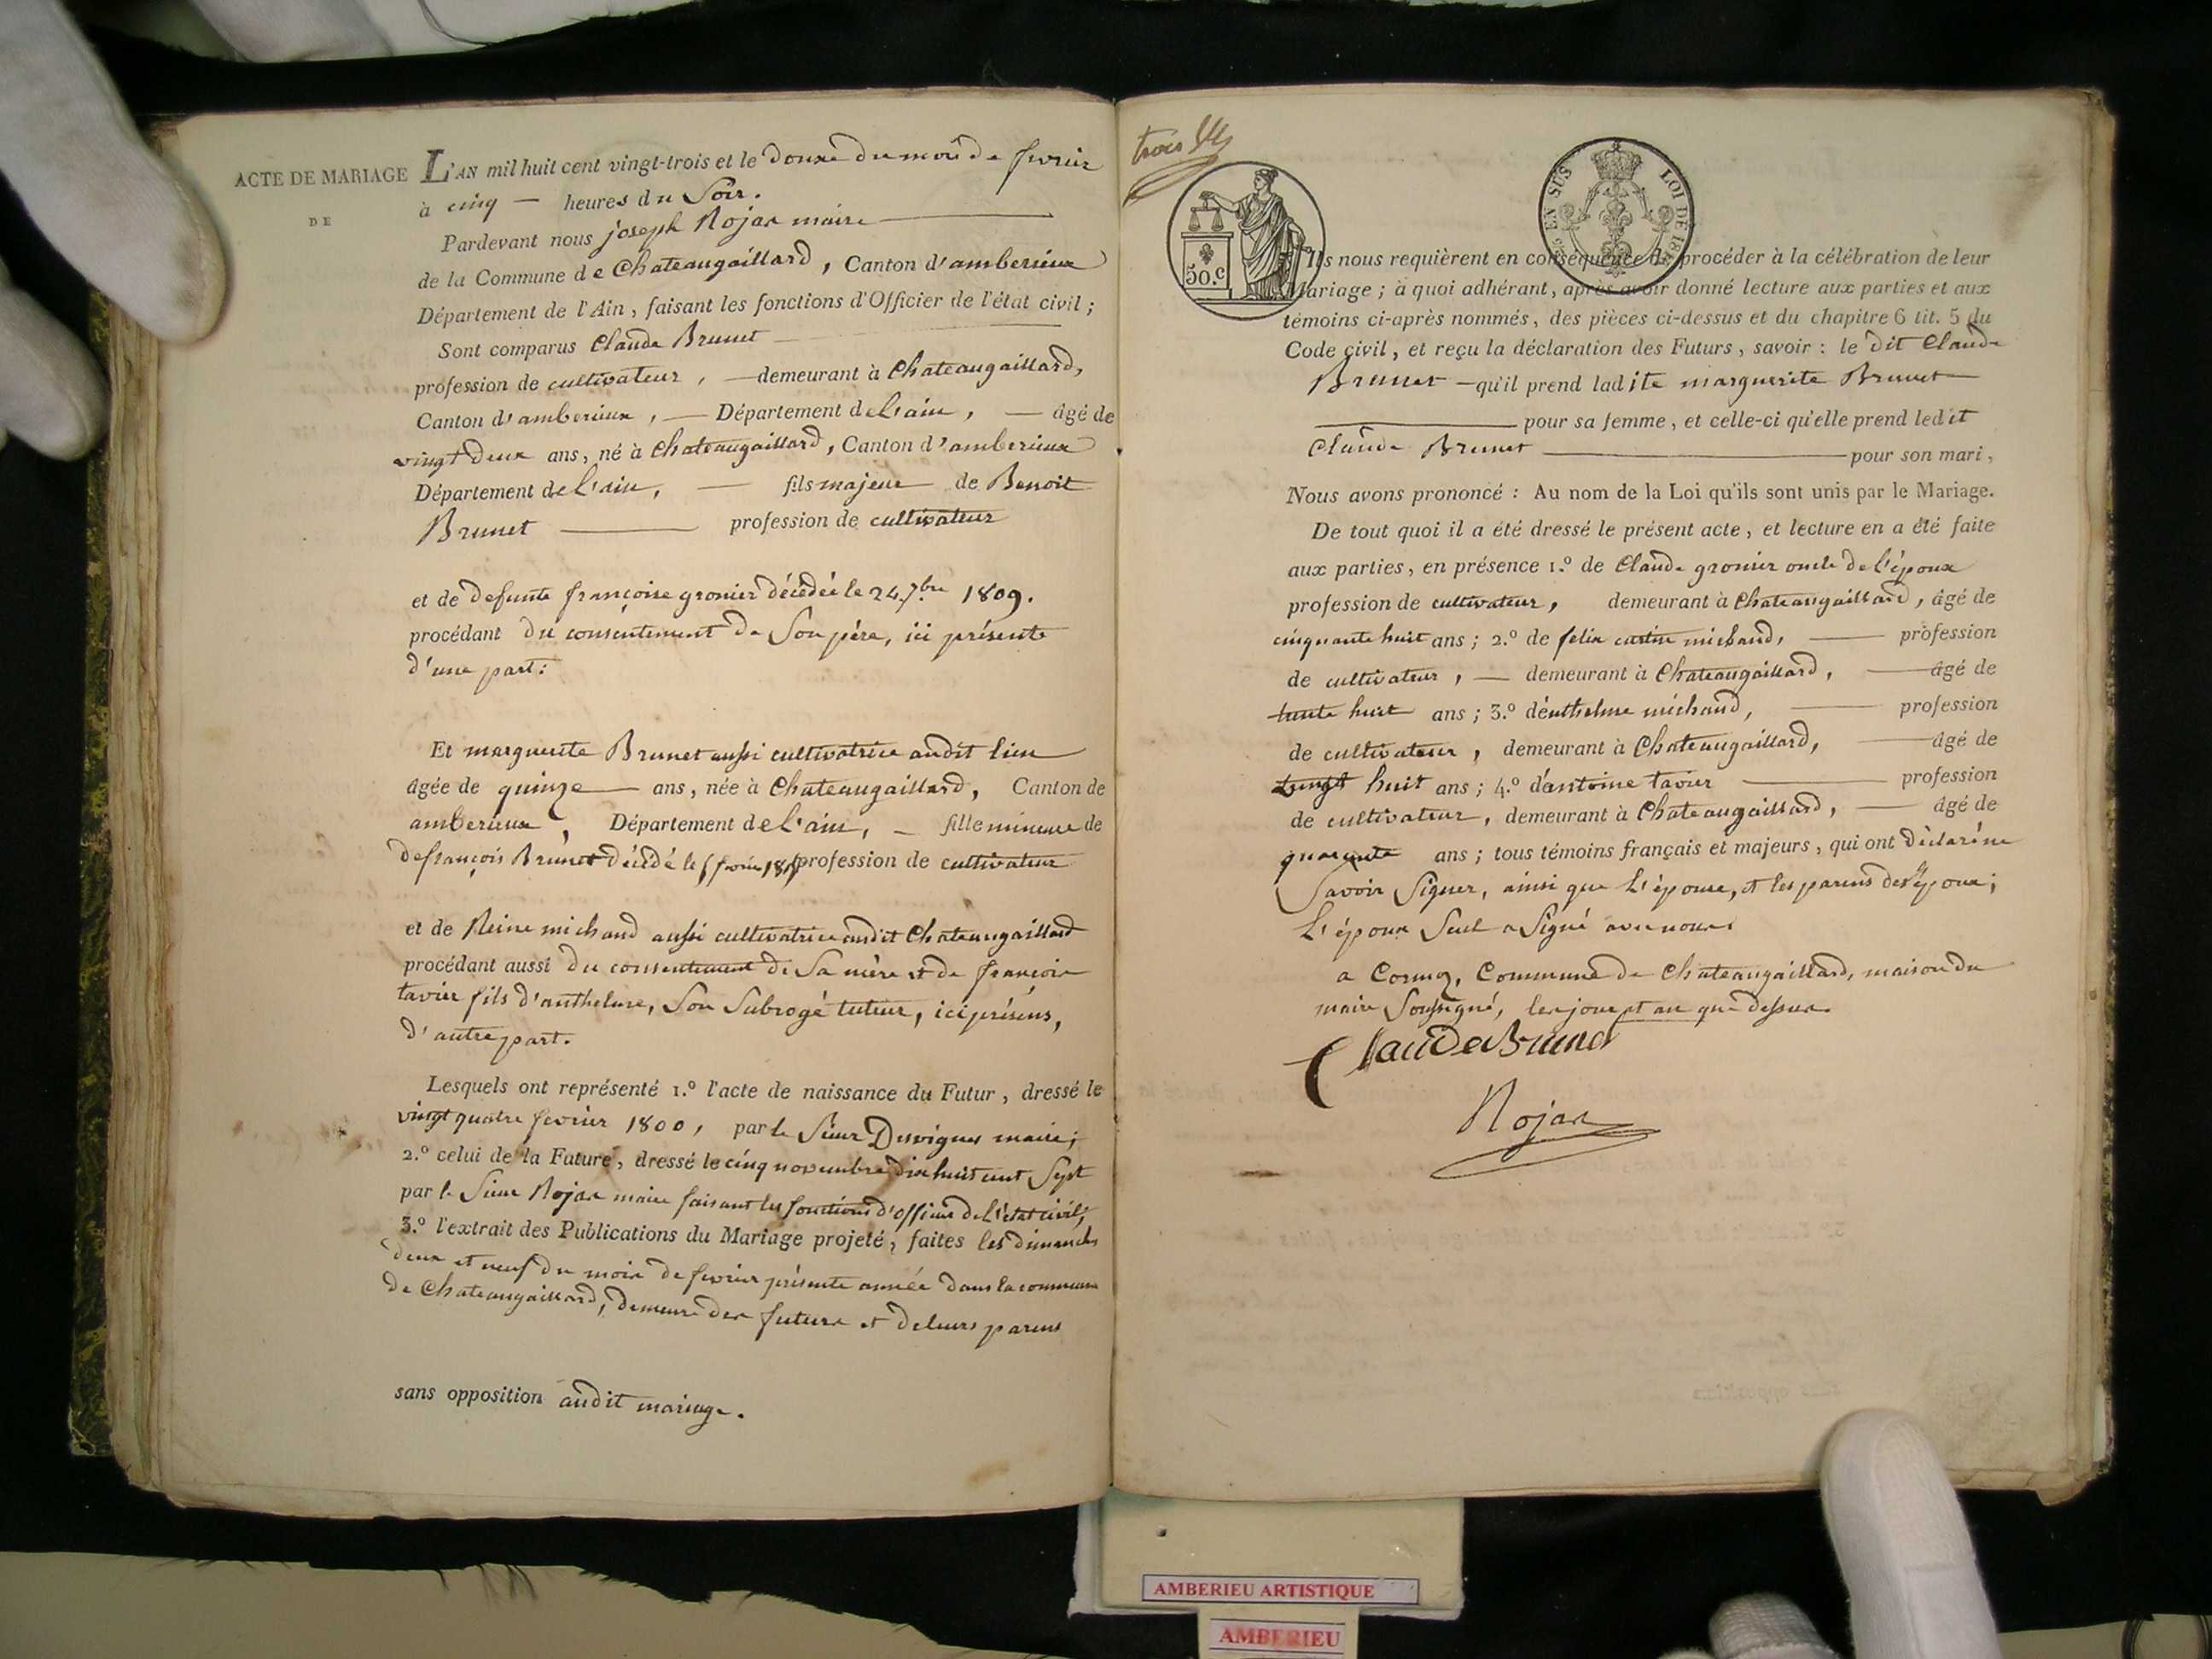 ACTE DE MARIAGE
DE
L'AN mil huit cent vingt-trois et le douze du mois de fevrier
à cinq — heures du Soir.
Pardevant nous joseph Rojat maire
de la Commune de Chateaugaillard, Canton d'amberieux
Département de l'Ain, faisant les fonctions d'Officier de l'état civil;
Sont comparus Claude Brunet
profession de cultivateur, — demeurant à Chateaugaillard,
Canton d'amberieux, — Département de L'ain, — âgé de
vingt deux ans, né à Chateaugaillard, Canton d'amberieux
Département de L'ain, — fils majeur de Benoit
Brunet — profession de cultivateur
et de defunte françoise gronier décédée le 24 7.bre 1809.
procédant du consentement de Son père, ici présente
d'une part:
Et marguerite Brunet aussi cultivatrice audit lieu
âgée de quinze — ans, née à Chateaugaillard, Canton de
amberieux, Département de L'ain, — fille mineure de
de françois Brunet décédé le profession de cultivateur
et de Reine michaud aussi cultivatrice audit Chateaugaillard
procédant aussi du consentement de Sa mère et de françois
tavier fils d'anthelme, Son Subrogé tuteur, ici présens,
d'autre part.
Lesquels ont représenté 1.º l'acte de naissance du Futur, dressé le
vingt quatre fevrier 1800, par le Sieur Desvignes maire;
2.º celui de la Future, dressé le cinq novembre dix huit cent Sept
par le Sieur Rojat maire faisant les fonctions d'officier de l'état civil;
3.º l'extrait des Publications du Mariage projeté, faites les dimanches
deux et neuf du mois de fevrier présente année dans la commune
de Chateaugaillard, demeure des futurs et de leurs parens
sans opposition audit mariage.
trois
50.c
EN SUS LOI DE 18
Ils nous requièrent en conséquence de procéder à la célébration de leur
Mariage; à quoi adhérant, après avoir donné lecture aux parties et aux
témoins ci-après nommés, des pièces ci-dessus et du chapitre 6 tit. 5 du
Code civil, et reçu la déclaration des Futurs, savoir: le dit Claude
Brunet — qu'il prend ladite marguerite Brunet
pour sa femme, et celle-ci qu'elle prend ledit
Claude Brunet — pour son mari,
Nous avons prononcé: Au nom de la Loi qu'ils sont unis par le Mariage.
De tout quoi il a été dressé le présent acte, et lecture en a été faite
aux parties, en présence 1.º de Claude gronier oncle de l'époux
profession de cultivateur, demeurant à Chateaugaillard, âgé de
cinquante huit ans; 2.º de felix michaud, — profession
de cultivateur, — demeurant à Chateaugaillard, — âgé de
trente huit ans; 3.º d'enthelme michaud, — profession
de cultivateur, demeurant à Chateaugaillard, — âgé de
huit ans; 4.º d'antoine tavier — profession
de cultivateur, demeurant à Chateaugaillard, — âgé de
quarante ans; tous témoins français et majeurs, qui ont déclaré ne
Savoir Signer, ainsi que L'épouse, et les parens des époux;
L'époux Seul a Signé avec nous
a Cormoz, Commune de Chateaugaillard, maison du
maire Soussigné, les jour et an que dessus
Claude Brunet
Rojat
AMBERIEU ARTISTIQUE
AMBERIEU